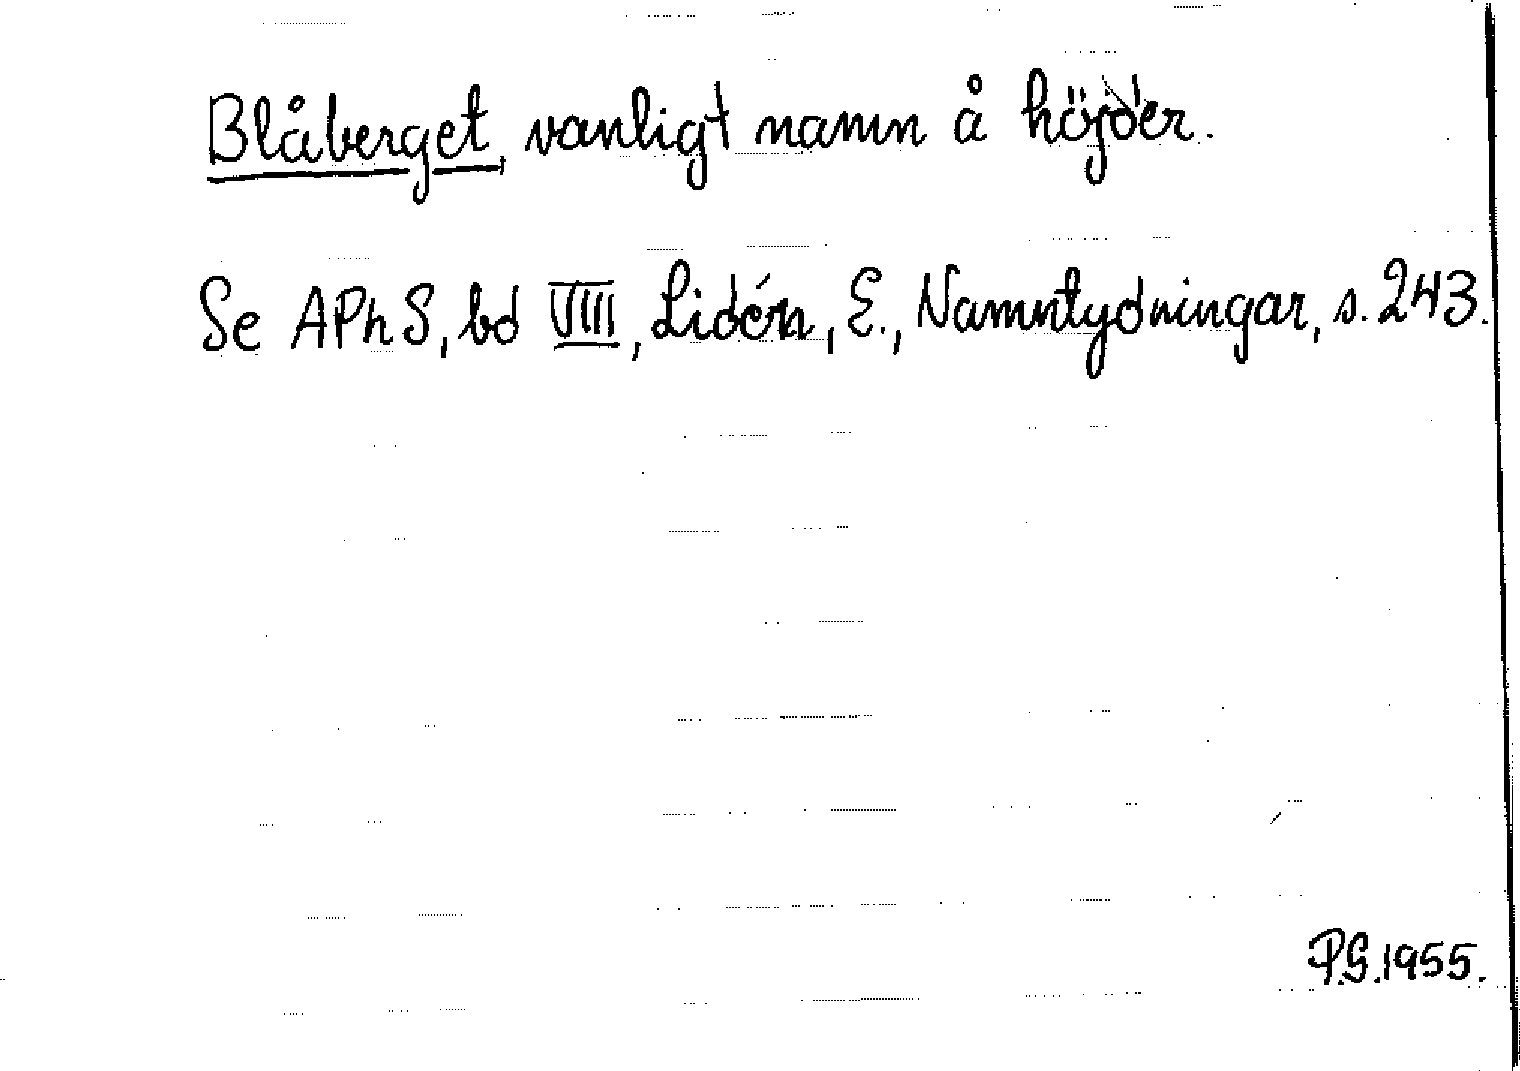 Blåberget, vanligt namn å höjder.
Se APhS, bd VIII, Lidén, E., Namntydningar, s. 243.
P.G. 1955.